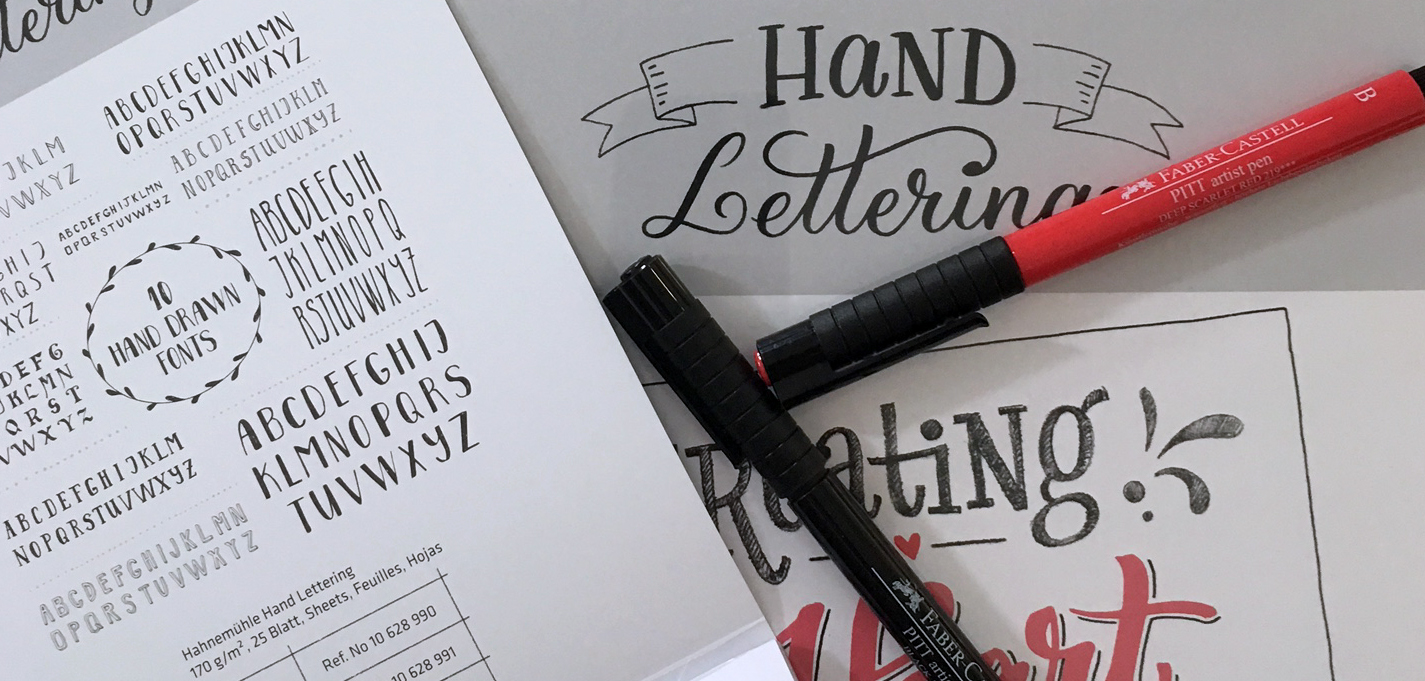 ABCDEFGHIJKLMN
OPQRSTUVWXYZ
JKLM
VWXYZ
ABCDEFGHIJKLM
NOPQRSTUVWXYZ
ABCDEFGHIJKLMN
OPQRSTUVWXYZ
GHIJ
RQST
XYZ
10
HAND DRAWN
FONTS
ABCDEFGIH
JKLMNOPQ
RSTUVWXYZ
DEFG
JKLMN
QRST
VWXYZ
ABCDEFGHIJ
KLMNOPQRS
TUVWXYZ
ABCDEFGHIJKLM
NOPQRSTUVWXYZ
ABCDEFGHIJKLMN
OPQRSTUVWXYZ
Hahnemühle Hand Lettering
170 g/m², 25 Blatt, Sheets, Feuilles, Hojas
Ref. No 10 628 990
10 628 991
HaND
Lettering
B
FABER-CASTELL
PITT artist pen
DEEP SCARLET RED 219***
Reating
FABER-CA
PITT arti